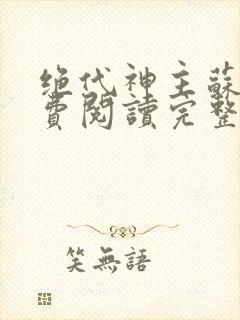 绝代神主蘇
費閱讀完整
笑無語